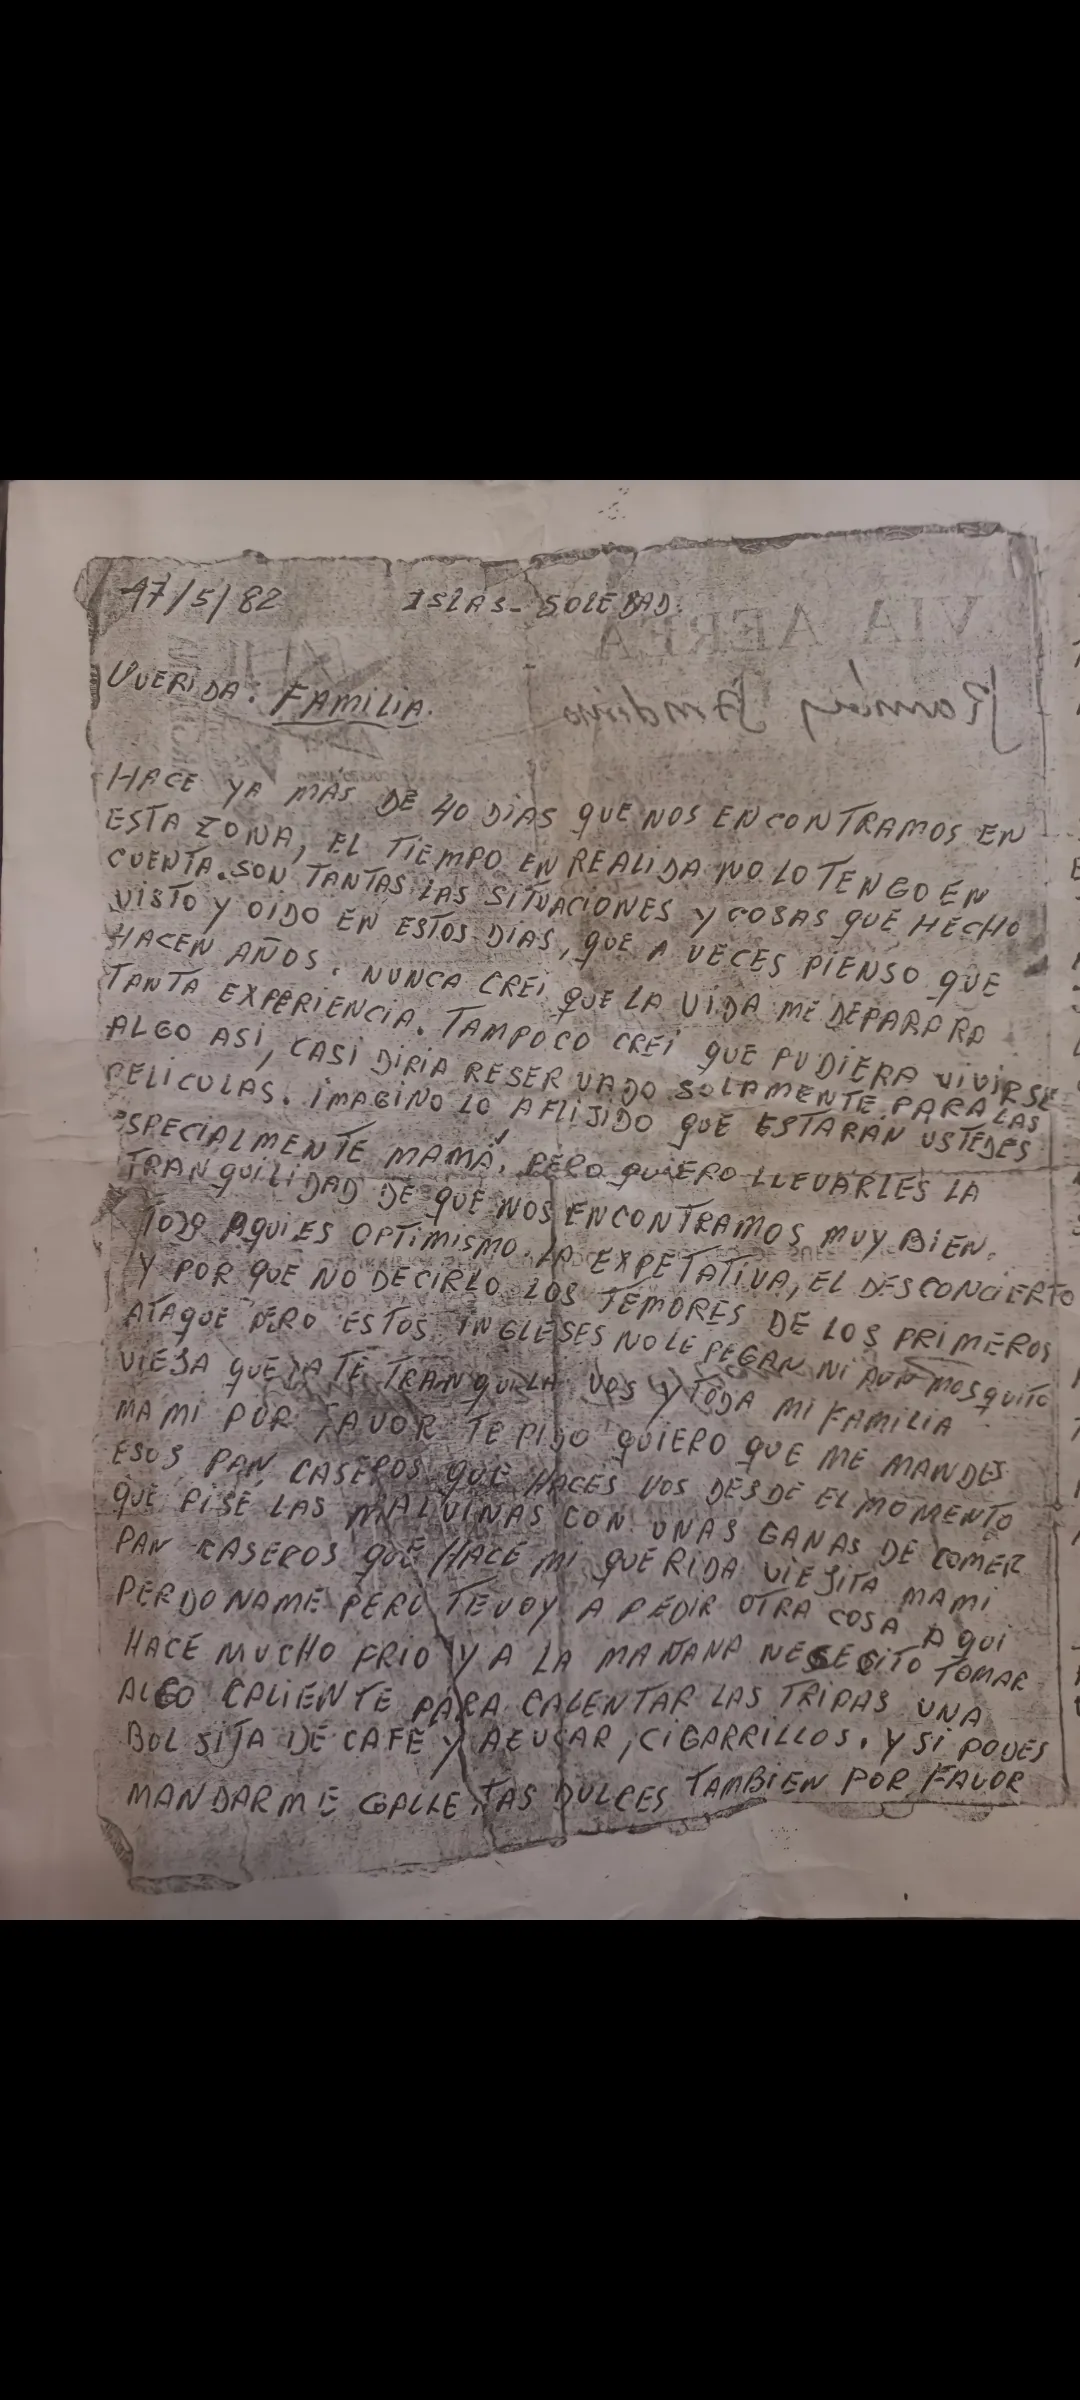 17/5/82 ISLAS-SOLEDAD.
VIA AEREA
QUERIDA: FAMILIA.
HACE YA MÁS DE 40 DIAS QUE NOS ENCONTRAMOS EN
ESTA ZONA, EL TIEMPO EN REALIDA NO LO TENGO EN
CUENTA. SON TANTAS LAS SITUACIONES Y COSAS QUE HECHO
VISTO Y OIDO EN ESTOS DIAS, QUE A VECES PIENSO QUE
HACEN AÑOS. NUNCA CREI QUE LA VIDA ME DEPARARA
TANTA EXPERIENCIA. TAMPOCO CREI QUE PUDIERA VIVIRSE
ALGO ASI, CASI DIRIA RESERVADO SOLAMENTE PARA LAS
PELICULAS. IMAGINO LO AFLIJIDO QUE ESTARÁN USTEDES
ESPECIALMENTE MAMÁ, PERO QUIERO LLEVARLES LA
TRANQUILIDAD DE QUE NOS ENCONTRAMOS MUY BIEN.
TODO AQUI ES OPTIMISMO. LA EXPETATIVA, EL DESCONCIERTO
Y POR QUE NO DECIRLO LOS TEMORES DE LOS PRIMEROS
ATAQUE PERO ESTOS INGLESES NO LE PEGAN NI MOSQUITO
VIEJA QUEDATE TRANQUILA VOS Y TODA MI FAMILIA
MAMI POR FAVOR TE PIDO QUIERO QUE ME MANDES
ESOS PAN CASEROS QUE HACES VOS DESDE EL MOMENTO
QUE PISÉ LAS MALVINAS CON UNAS GANAS DE COMER
PAN CASEROS QUE HACE MI QUERIDA VIEJITA MAMI
PERDONAME PERO TE VOY A PEDIR OTRA COSA AQUI
HACE MUCHO FRIO Y A LA MAÑANA NESECITO TOMAR
ALGO CALIENTE PARA CALENTAR LAS TRIPAS UNA
BOLSITA DE CAFE Y AZUCAR, CIGARRILLOS. Y SI PODES
MANDARME GALLETAS DULCES TAMBIEN POR FAVOR